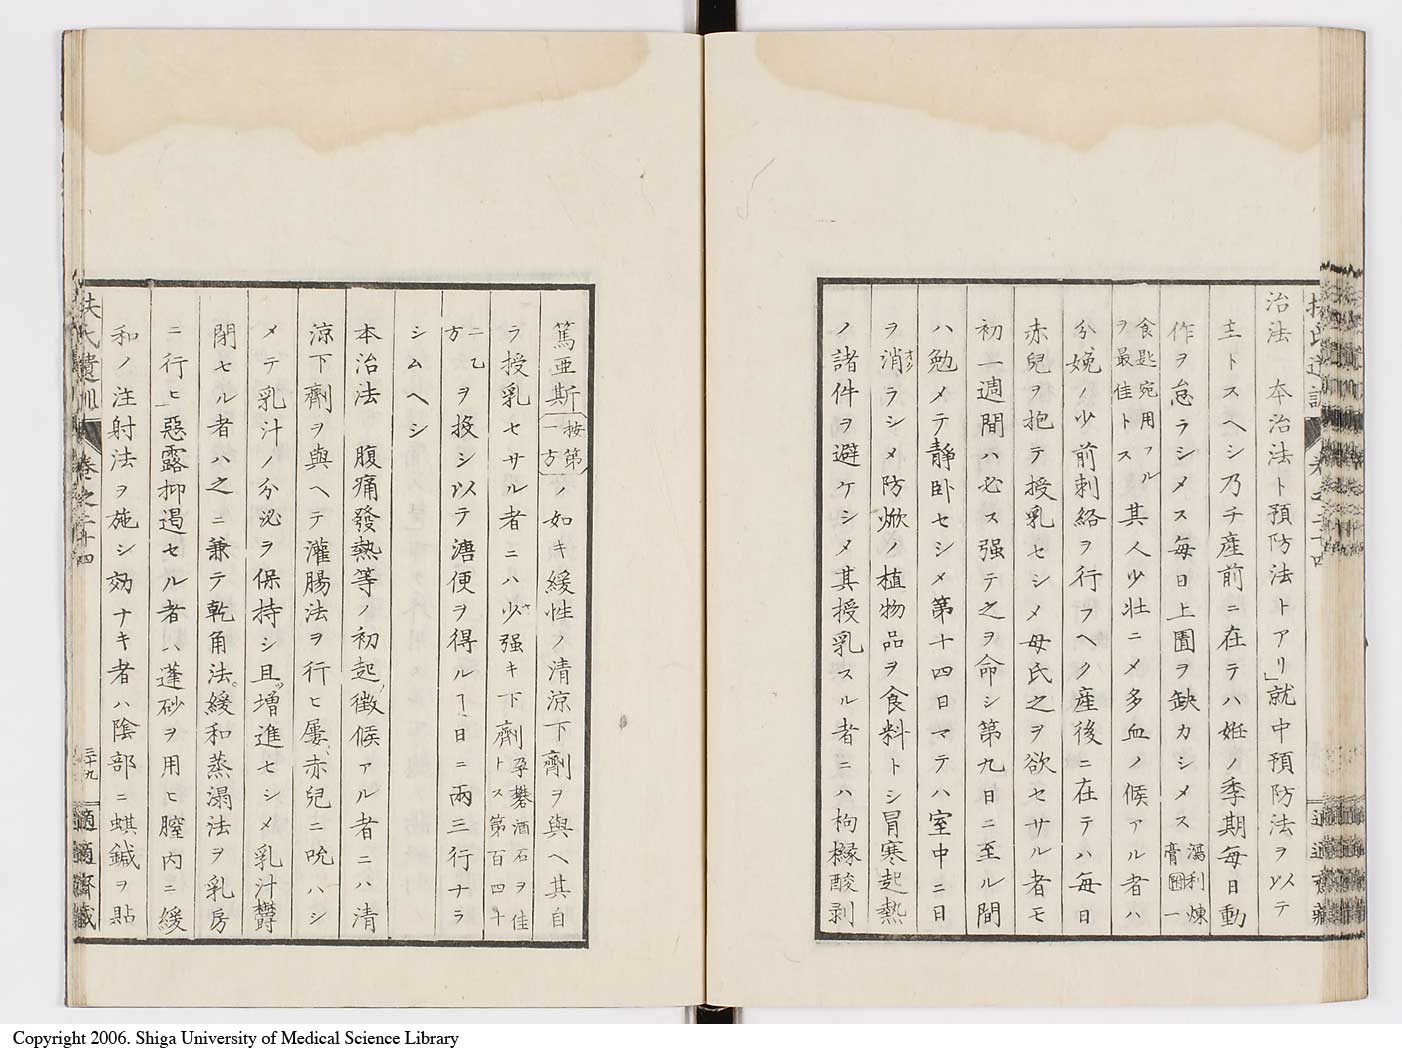 治法 本治法ト預防法トアリ」就中預防法ヲ以テ
主トスヘシ乃チ産前ニ在テハ妊ノ季期毎日動
作ヲ怠ラシメス毎日上圊ヲ缺カシメス瀉利煉膏圏一
食匙宛用フルヲ最佳トス其人少壮ニメ多血ノ候アル者ハ
分娩ノ少前刺絡ヲ行フヘク産後ニ在テハ毎日
赤兒ヲ抱テ授乳セシメ母氏之ヲ欲セサル者モ
初一週間ハ必ス强テ之ヲ命シ第九日ニ至ル間
ハ勉メテ靜卧セシメ第十四日マテハ室中ニ日
ヲ消ラシメ防焮ノ植物品ヲ食料トシ冒寒起熱
ノ諸件ヲ避ケシメ其授乳スル者ニハ枸櫞酸剥
篤亜斯按第一方ノ如キ緩性ノ清涼下劑ヲ與ヘ其自
ラ授乳セサル者ニハ少强キ下劑孕礬酒石ヲ佳トス第百四十
二乙方ヲ投シ以テ溏便ヲ得ルヿ日ニ兩三行ナラ
シムヘシ
本治法 腹痛發熱等ノ初起徴候アル者ニハ清
涼下劑ヲ與ヘテ灌腸法ヲ行ヒ屡赤兒ニ吮ハシ
メテ乳汁ノ分泌ヲ保持シ且増進セシメ乳汁欝
閉セル者ハ之ニ兼テ乾角法緩和蒸溻法ヲ乳房
ニ行ヒ惡露抑遏セル者ハ蓬砂ヲ用ヒ膣内ニ緩
和ノ注射法ヲ施シ効ナキ者ハ陰部ニ蜞鍼ヲ貼
扶氏遺訓 卷之二十四 三十九 適適齋藏
Copyright 2006. Shiga University of Medical Science Library